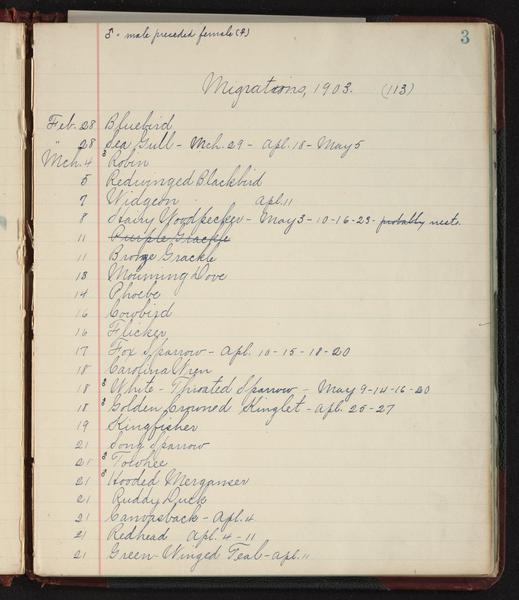 3
♂ - male preceded female (♀)
Migrations, 1903. (113)
Feb. 28 Bluebird
" 28 Sea Gull - Mch. 29 - Apl. 18 - May 5
Mch. 4 ♂ Robin
5 Redwinged Blackbird
7 Widgeon Apl. 11
8 Hairy Woodpecker - May 3 - 10 - 16 - 23 - probably nests.
11 Purple Grackle
11 Bronze Grackle
13 Mourning Dove
14 Phoebe
16 Cowbird
16 Flicker
17 Fox Sparrow - Apl. 10 - 15 - 18 - 20
18 Carolina Wren
18 ♂ White - Throated Sparrow - May 9 - 14 - 16 - 20
18 ♂ Golden Crowned Kinglet - Apl. 25 - 27
19 Kingfisher
21 Song Sparrow
21 ♂ Towhee
21 ♂ Hooded Merganser
21 Ruddy Duck
21 Canvasback - Apl. 4
21 Redhead Apl. 4 - 11
21 Green - Winged Teal - Apl. 11